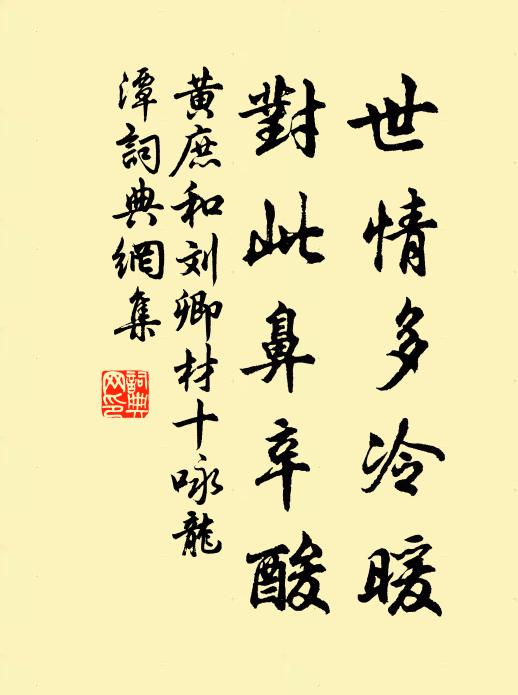 世情多冷暖
對此鼻辛酸
黄庶和刘卿材十咏龍
潭詞典網集
詞典
网印